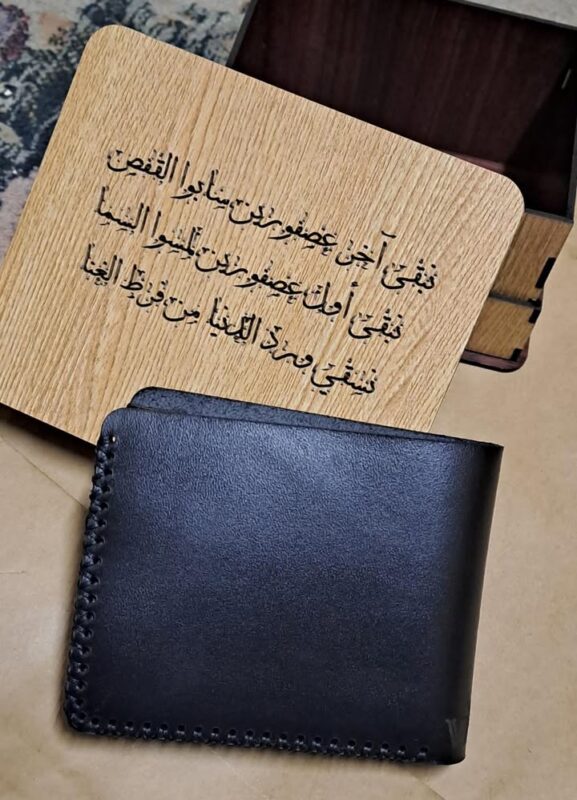 نبقى آخر عصفورين سابوا القفص
نبقى أول عصفورين لمسوا السما
نسقي ورد الدنيا من فرط الغنا